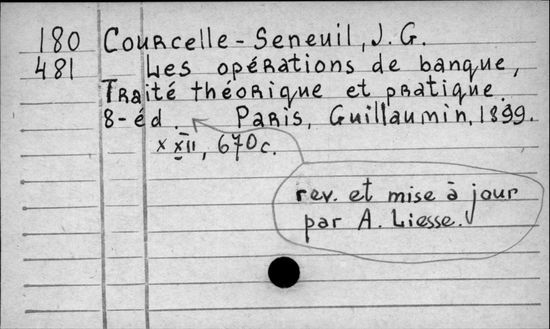 180 Courcelle-Seneuil, J. G.
481 Les opérations de banque,
Traité théorique et pratique.
8-éd. Paris, Guillaumin, 1899.
xxii, 670c.
rev. et mise à jour
par A. Liesse.